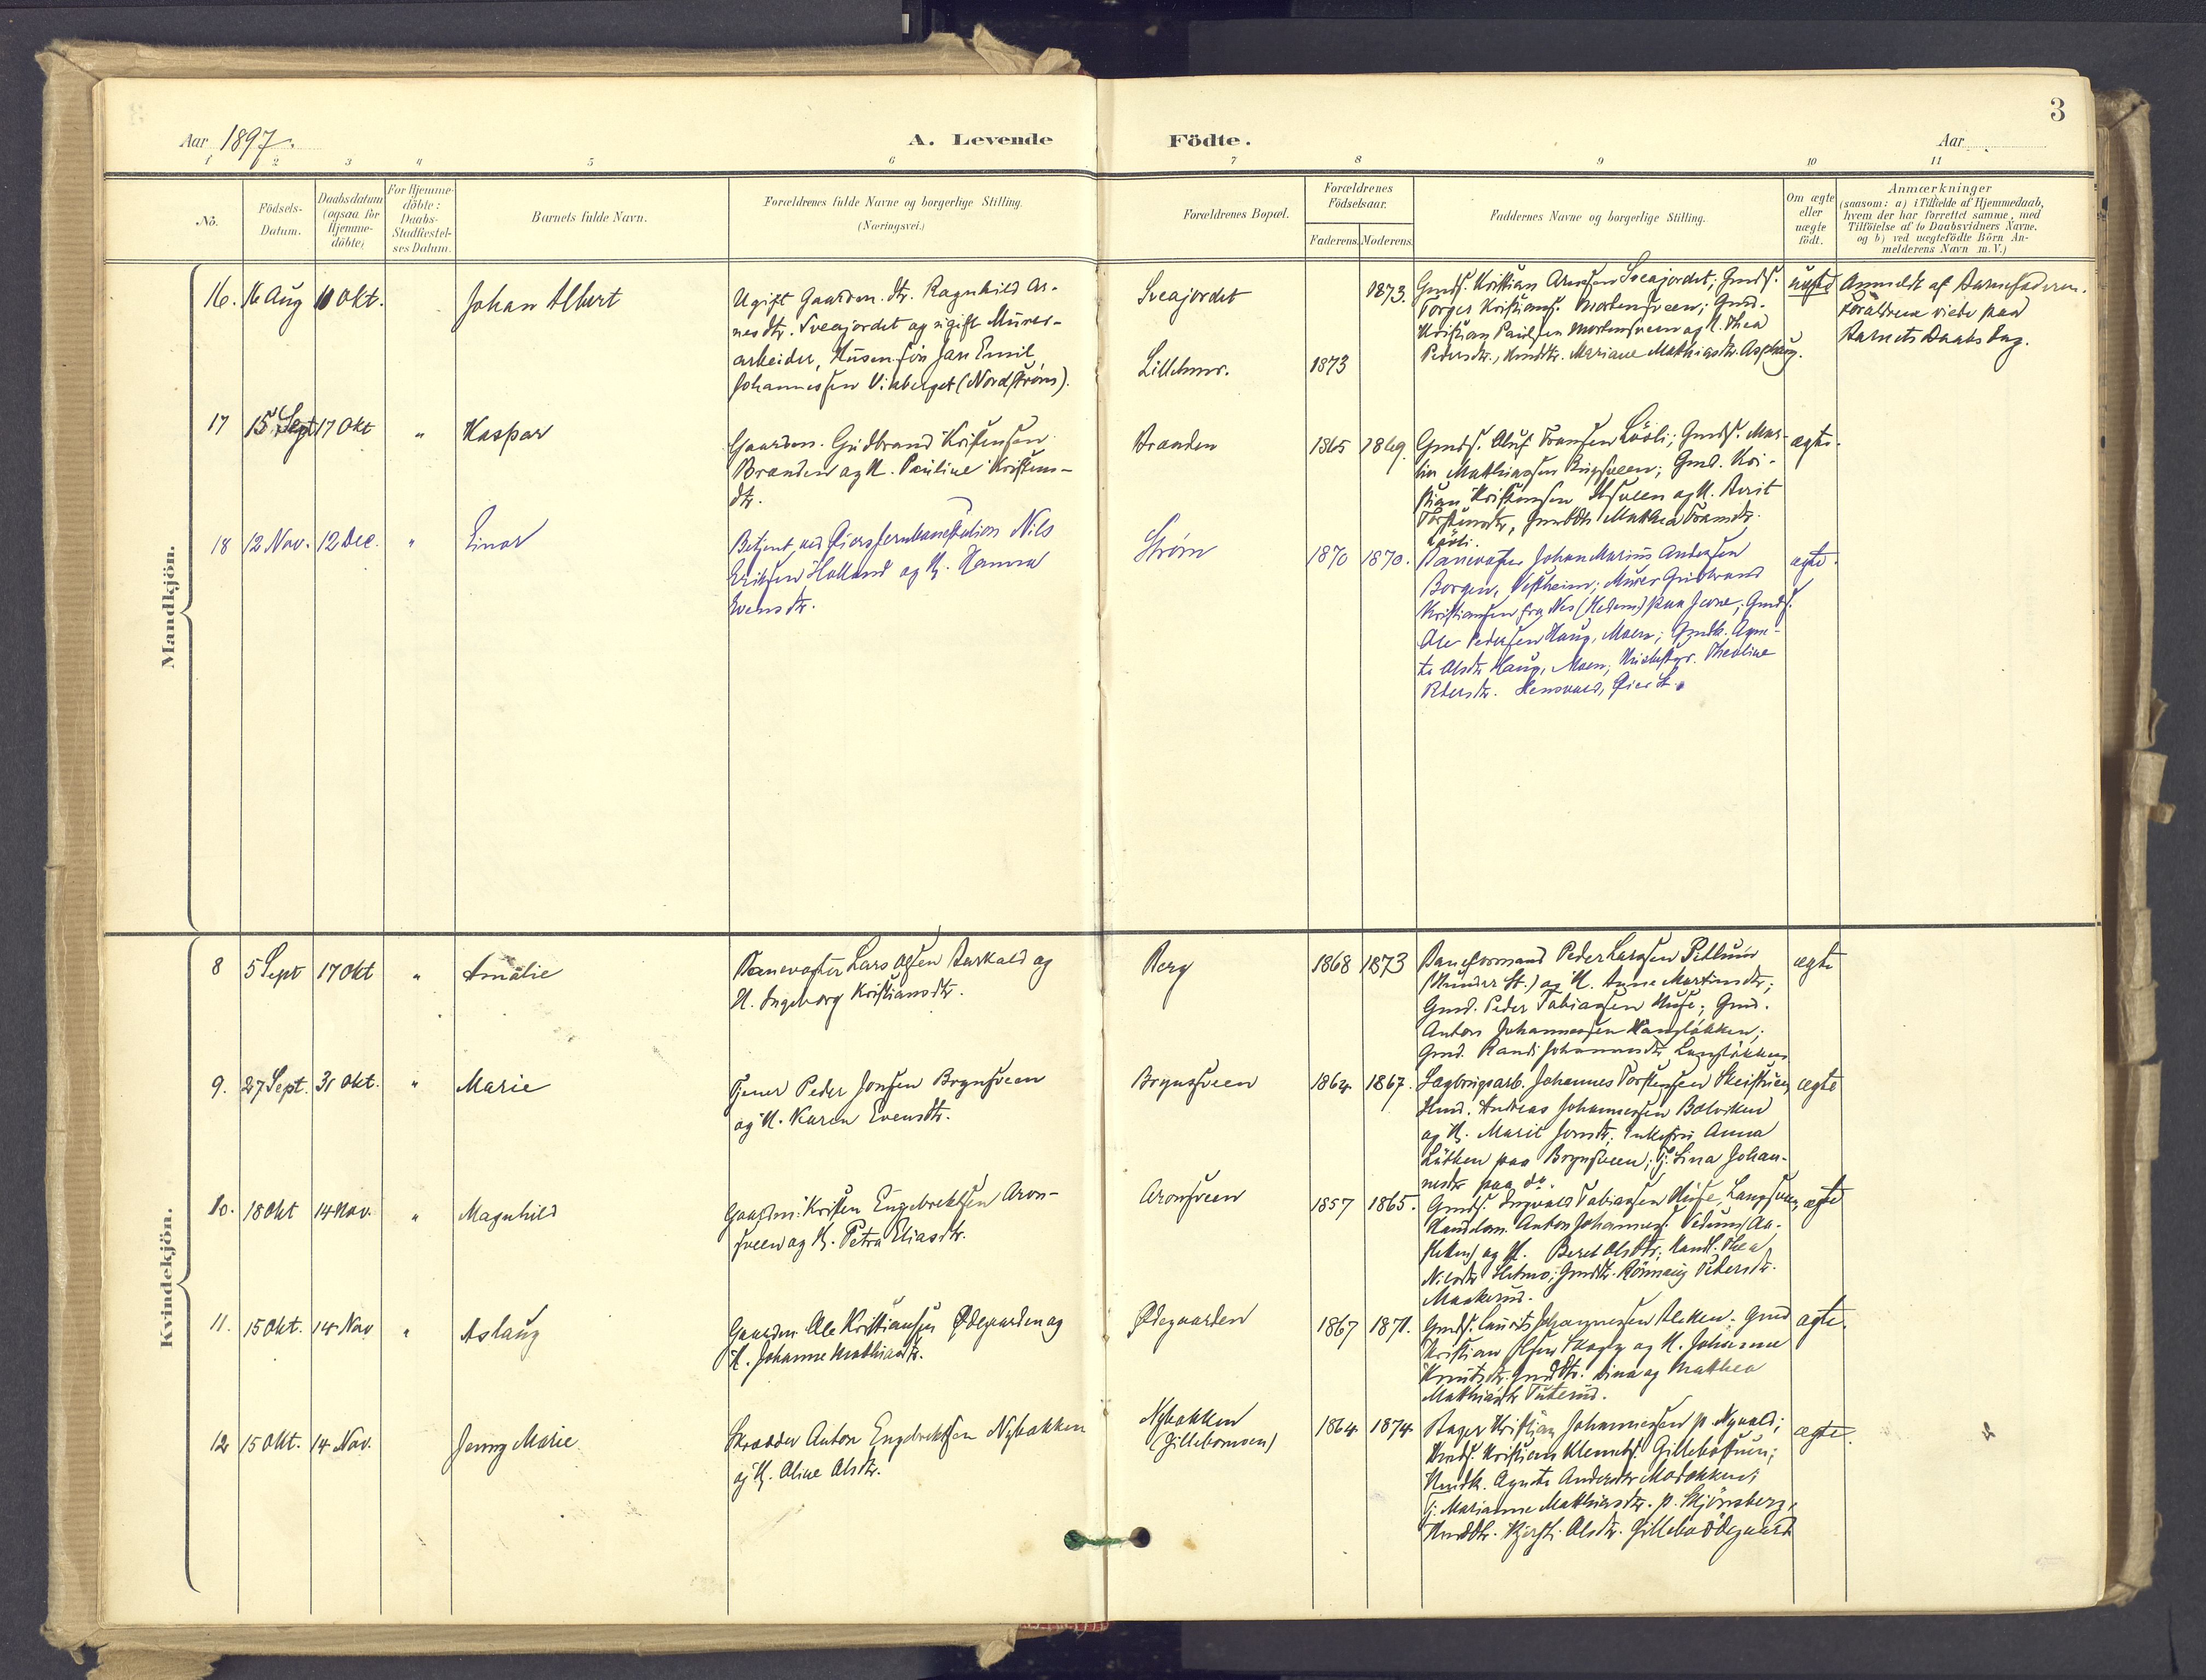 3
Aar 1897.
A. Levende
Födte.
Aar
1 2 3 4 5 6 7 8 9 10 11
Nô.
Födsels-
Datum.
Daabsdatum
(ogsaa for
Hjemme-
döbte)
For Hjemme-
döbte:
Daabs-
Stadfæstel-
ses Datum.
Barnets fulde Navn.
Forældrenes fulde Navne og borgerlige Stilling.
(Næringsvei.)
Forældrenes Bopæl.
Forældrenes
Födselsaar.
Faderens. Moderens.
Faddernes Navne og borgerlige Stilling.
Om ægte
eller
uægte
födt.
Anmærkninger
(saasom: a) i Tilfælde af Hjemmedaab,
hvem der har forrettet samme, med
Tilföielse af to Daabsvidners Navne.
og b) ved uægtefödte Börn An-
melderens Navn m.V.)
Mandkjön.
16. 16 Aug 10 Okt.
Johan Albert
Ugift Gaardm. dtr. Ragnhild Ar-
nesdtr. Sveajordet og ugift Murer-
arbeider, Husm. søn Jan Emil
Johannessen Vikberget (Nordstrøm).
Sveajordet
Lillehmr.
1873
1873.
Gmds. Kristian Arnesen Sveajordet; Gmds.
Torger Kristians. Mortensveen; Gmd.
Kristian Paulsen Mortensveen og H. Thea
Pedersdtr., Hmdtr. Mariane Mathiasdtr. Asphaug.
uægte
Anmeldt af Barnefaderen.
Forældrene viede paa
Barnets Daabsdag.
17 15 Sept 17 Okt "
Kaspar
Gaardm. Gudbrand Kristensen
Branden og H. Pauline Kristens-
dtr.
Branden
1865 1869.
Gmds. Oluf Fransen Lööli; Gmds. Mar-
tin Mathiassen; Gmd. Kri-
stian Kristensen og H. Berit
Mathea Framdtr.
Lööli.
ægte.
18 12 Nov. 12 Dec. "
Einar
Betjent ved Øiers Jernbanestation Nils
Eriksen Holland og H. Hanna
Evensdtr.
Strøm
1870 1870.
Banevogter Johan Marius Andersen
Borgen, Vestheim; Murer Gudbrand
Kristiansen fra Nes (Hedem) paa Jevne; Gmds.
Ole Pedersen Haug, Moen; Gmdk. Agne-
te Olsdtr. Haug, Moen; Theoline
Pedersdtr. Hensvald, Øier St.
ægte.
Kvindekjön.
8 5 Sept 17 Okt "
Amalie
Banevogter Lars Olsen Aurkald og
H. Ingeborg Kristiansdtr.
Berg
1868 1873
Baneformand Peder Larssen
(Hunder St.) og H. Anne Martinsdtr;
Gmd. Peder Tobiassen Huse; Gmd.
Anton Johannessen;
Gmd. Randi Johannesdtr
ægte
9. 27 Sept. 31 Okt. "
Marie
Tjener Peder Jonsen Brynsveen
og H. Karen Evensdtr.
Brynsveen
1864 1867.
Sagbrugsarb. Johannes Torstensen
Hmd. Andreas Johannessen Bælviken
og H. Marit Jonsdtr; Enkefru Anna
Lütken paa Brynsveen; Tj. Lina Johan-
nesdtr paa do.
ægte
10. 18 Okt 14 Nov. "
Magnhild
Gaardm. Kristen Engebrektsen Aron-
sveen og H. Petra Eliasdtr.
Aronsveen
1857 1865.
Gmds. Ingvald Tobiassen Huse, Langsveen,
Handelsm. Anton Johanness. Vedum (Aa-
sletten) og H. Beret Olsdtr; Handl. Thea
Nilsdtr Sletmo; Gmdtr. Rönnaug Pedersdtr.
Maakerud.
ægte
11. 15 Okt. 14 Nov "
Aslaug
Gaardm. Ole Kristiansen Ødegaarden og
H. Johanne Mathiasdtr.
Ødegaarden
1867 1871.
Gmds. Laurits Johannessen Bleken; Gmd
Kristian Olsen Skogly og H. Johanne
Knutsdtr. Gmddtr. Dina og Mathea
Mathiasdtr Tuterud.
ægte.
12 15 Okt. 14 Nov.
Jenny Marie
Skrædder Anton Engebrektsen Nybakken
og H. Oline Olsdtr.
Nybakken
(Gillebomoen)
1864 1874
Bager Kristian Johannessen p. Nyvold;
Hmds. Kristian Klemets. Gillebostuen;
Hmdk. Agnete Andersdtr Mobakken;
Tj. Marianne Mathiasdtr. p. Skjönsberg,
Hmddtr. Kjersti Olsdtr. Gillebo Ödegaard
ægte.